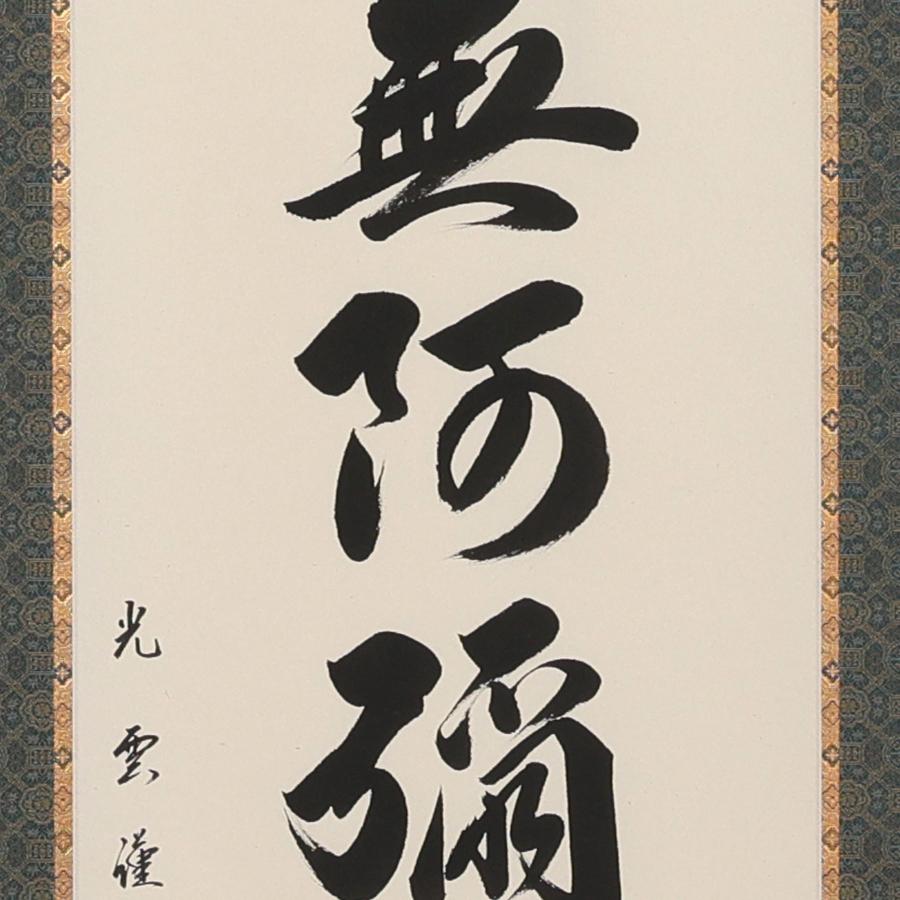 無阿彌
光雲謹